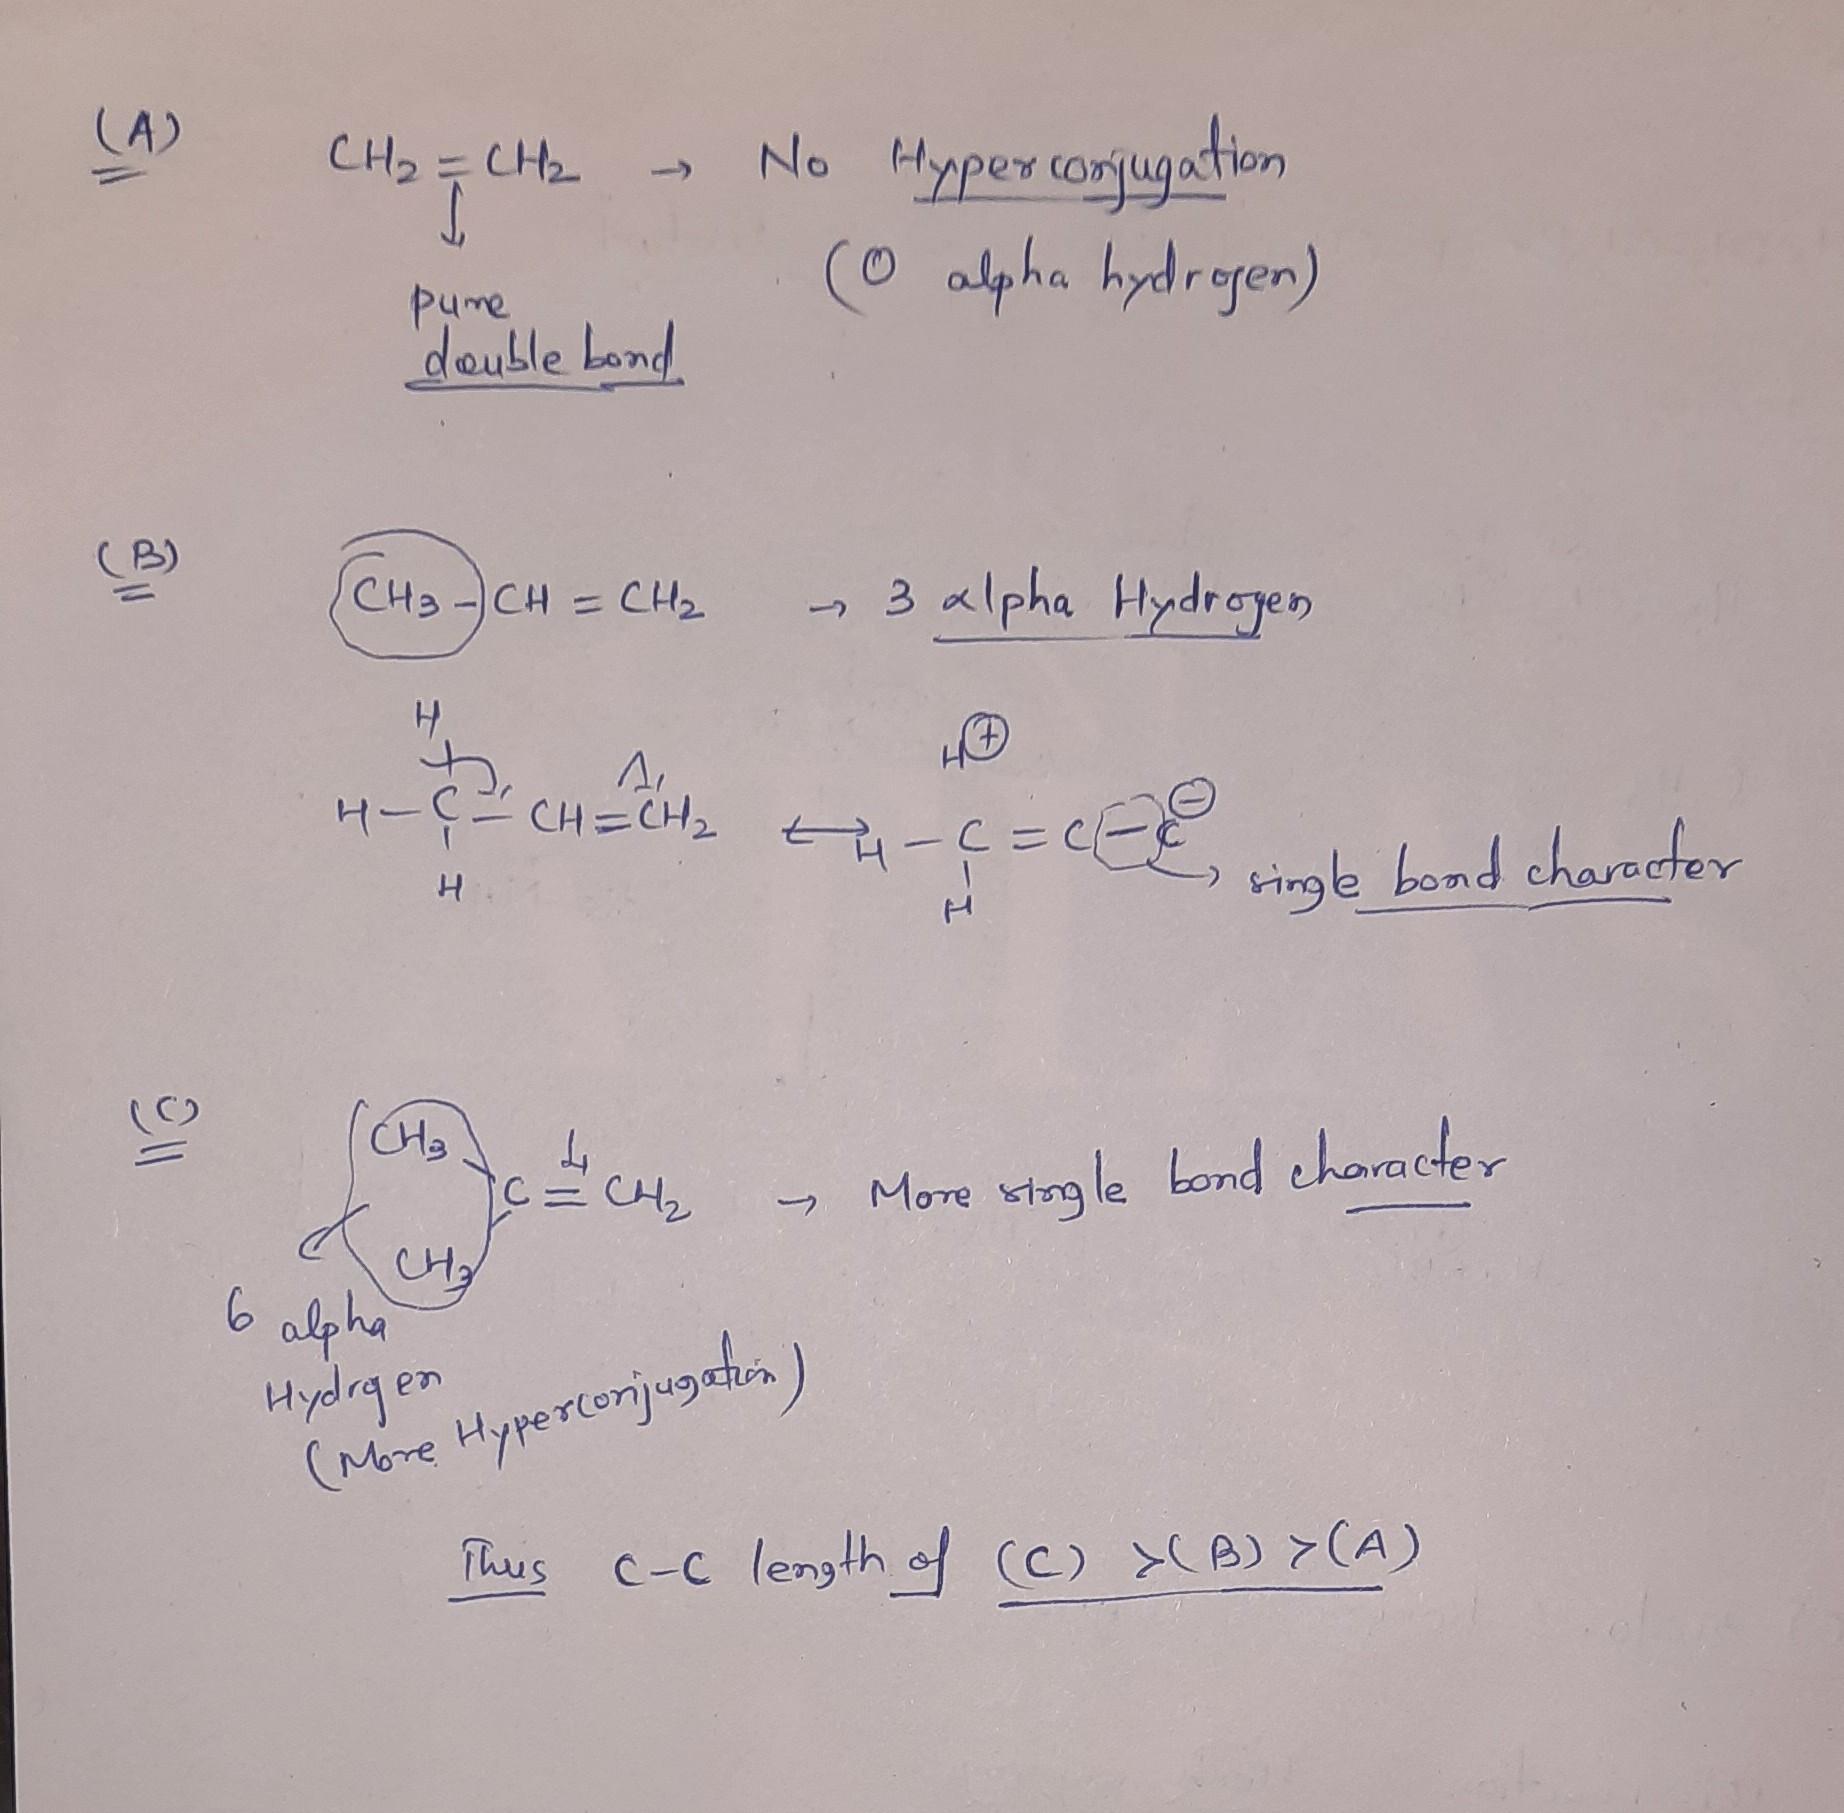 (A) CH2 = CH2 → No Hyperconjugation
(0 alpha hydrogen)
pure
double bond
(B) CH3 - CH = CH2 → 3 alpha Hydrogen
H
H - C - CH = CH2 ↔ H - C = C - C ⊖
H
H ⊕
H
single bond character
(C) CH3
C = CH2 → More single bond character
CH3
6 alpha
Hydrogen
(More Hyperconjugation)
Thus C-C length of (C) > (B) > (A)